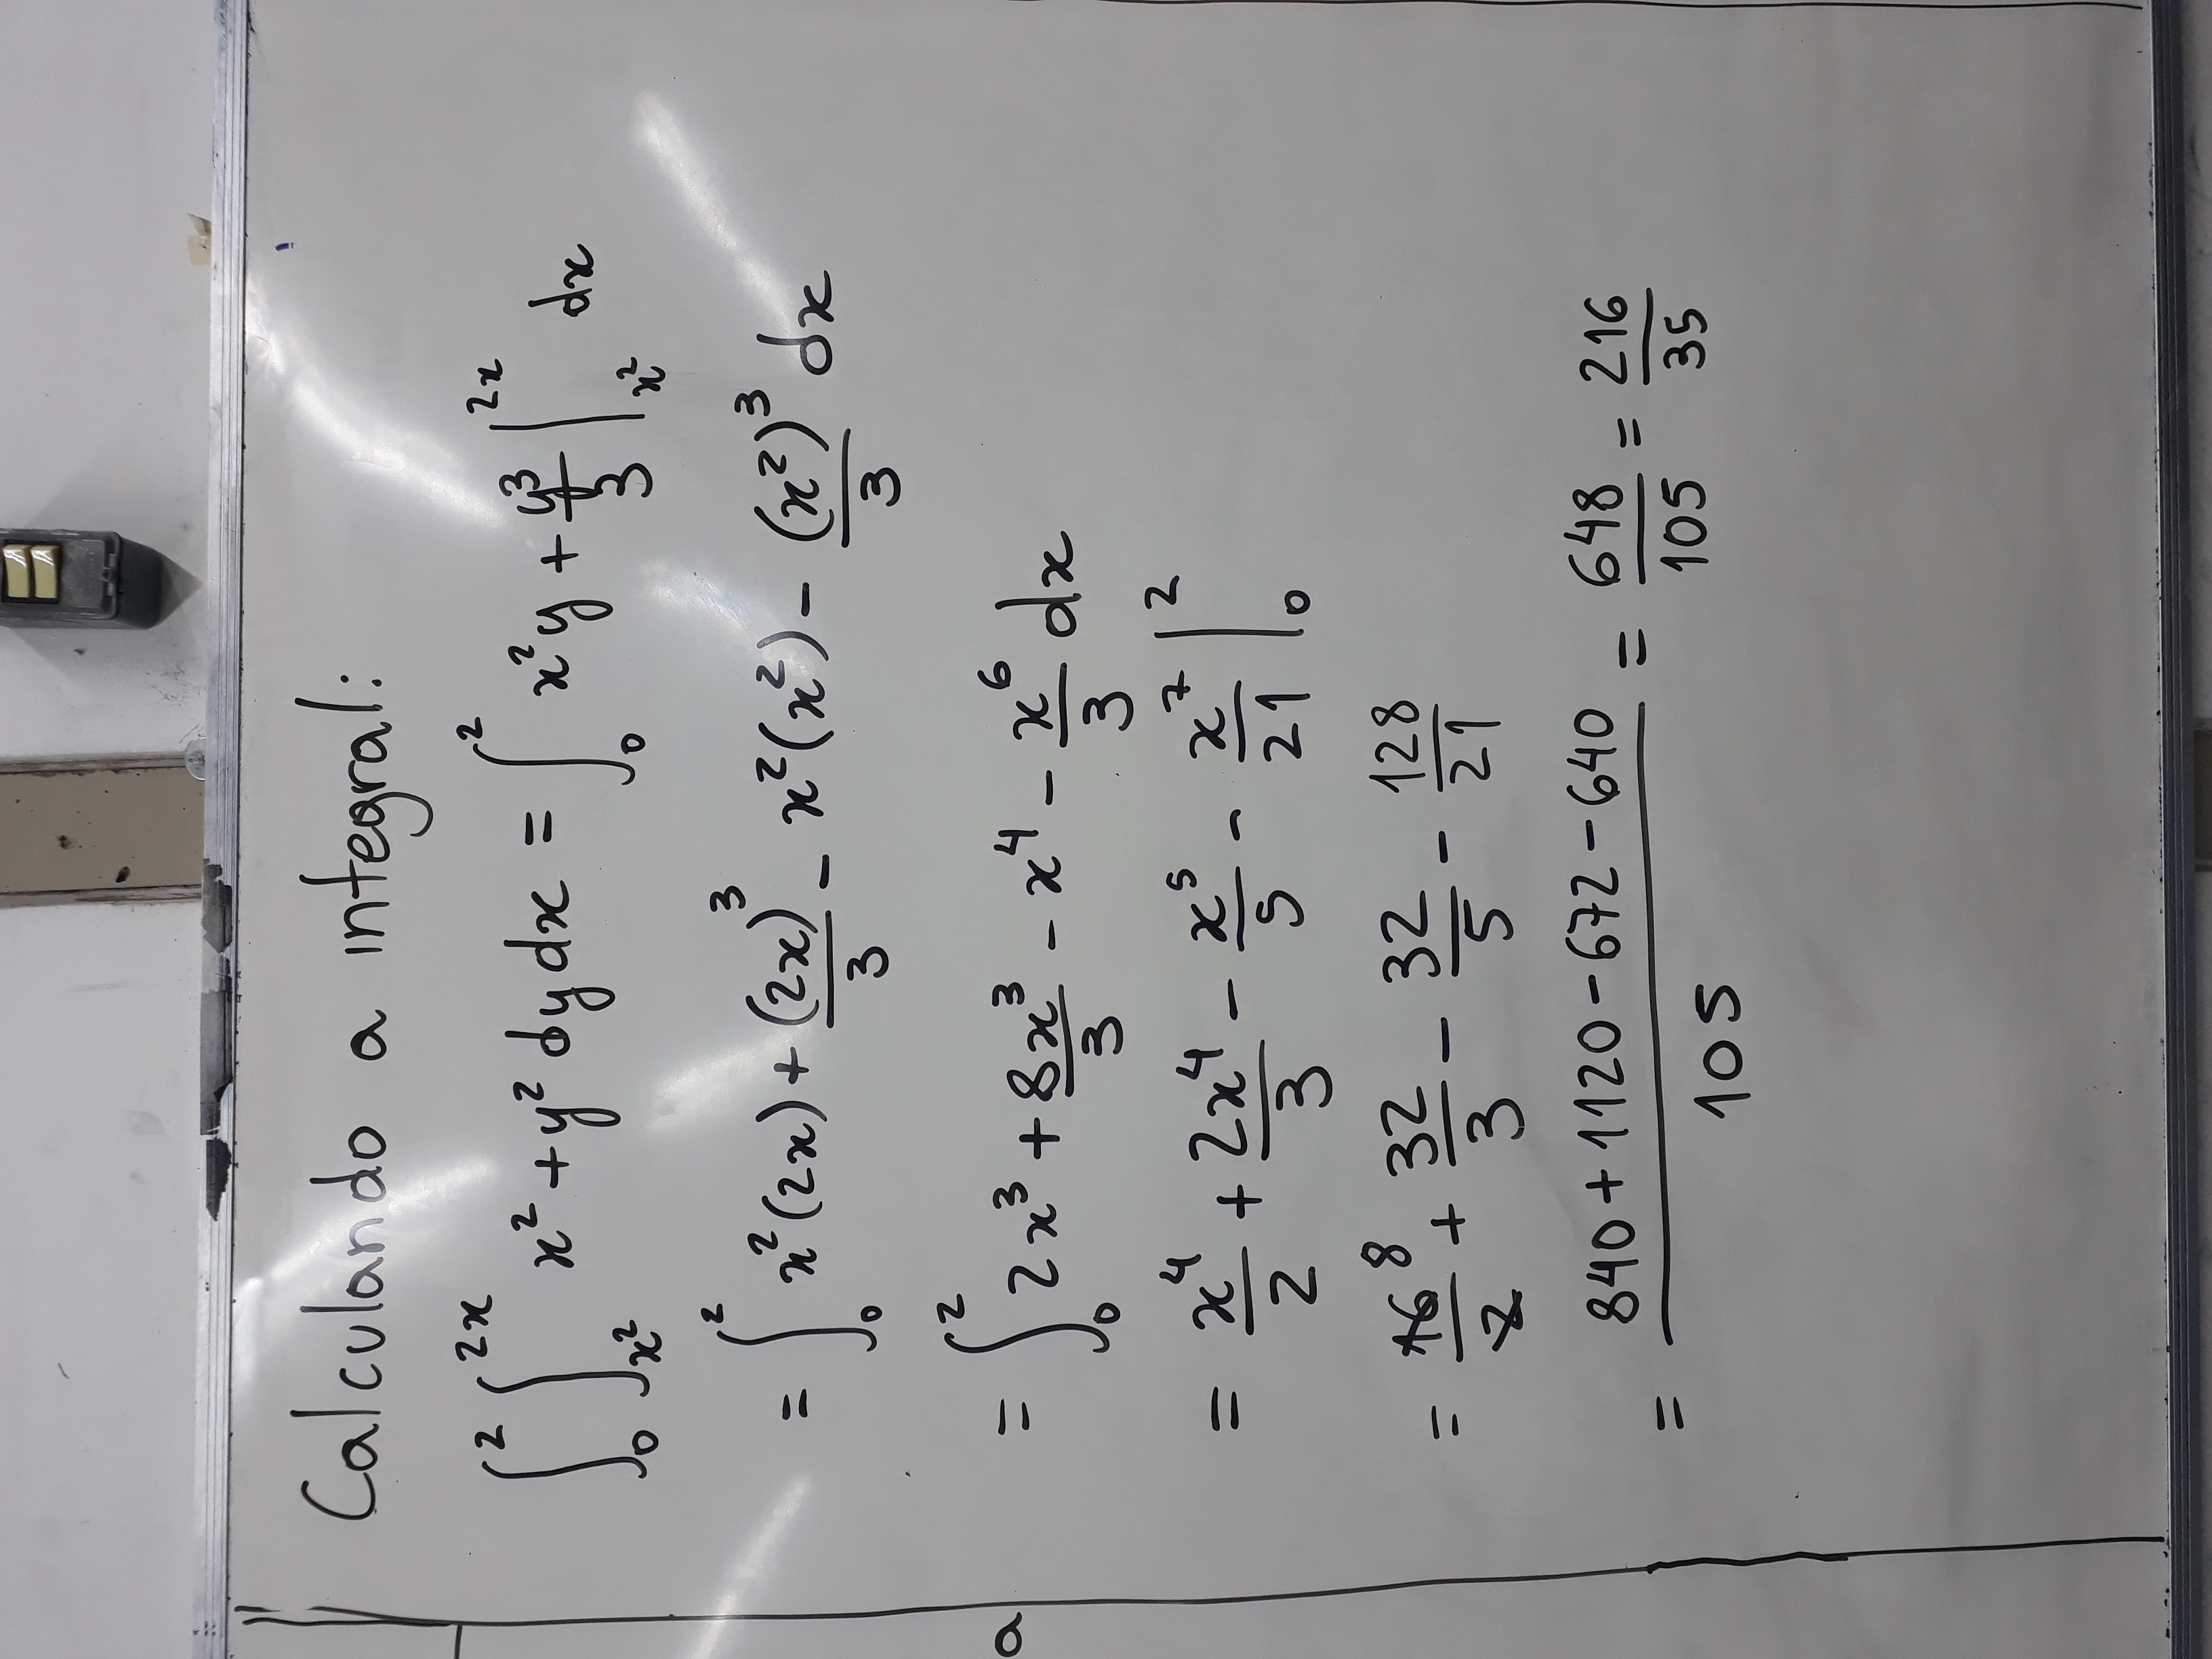 Calculando a integral:
∫₀² ∫_{x²}^{2x} x² + y² dy dx = ∫₀² x²y + y³/3 |_{x²}^{2x} dx
= ∫₀² x²(2x) + (2x)³/3 - x²(x²) - (x²)³/3 dx
= ∫₀² 2x³ + 8x³/3 - x⁴ - x⁶/3 dx
= x⁴/2 + 2x⁴/3 - x⁵/5 - x⁷/21 |₀²
= 16/2 8 + 32/3 - 32/5 - 128/21
= (840 + 1120 - 672 - 640)/105 = 648/105 = 216/35
a